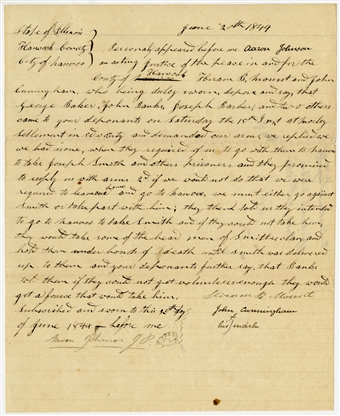 State of Illinois } June 20th 1844
Hancock County } Personally appeared before me Aaron Johnson
City of Nauvoo } an acting Justice of the peace in and for the
County of Hancock Hiram B. Mount and John
Cunningham who being duly sworn, depose and say that
George Baker, John Banks, Joseph Barber, and two others
came to your deponants on Saturday the 15th Inst at
settlement in said county and demanded our arms, we replied we
we had none, when they required of us to go with them to nauvoo
to take Joseph Smith and others prisoners and they promised
to supply us with arms if we would not do that we were
required to leave our home and go to nauvoo, we must either go against
Smith or take part with him; they then told us they intended
to go to nauvoo to take Smith and if they could not take him,
they would take some of the head men of Smiths clan, and
hold them under bonds of death until Smith was delivered
up to them and your deponants further say, that Banks
told them if they could not get volunteers enough they would
get a force that would take him. Hiram B Mount
Subscribed and sworn to this 20th day John Cunningham
of June 1844 before me his mark
Aaron Johnson J.P.